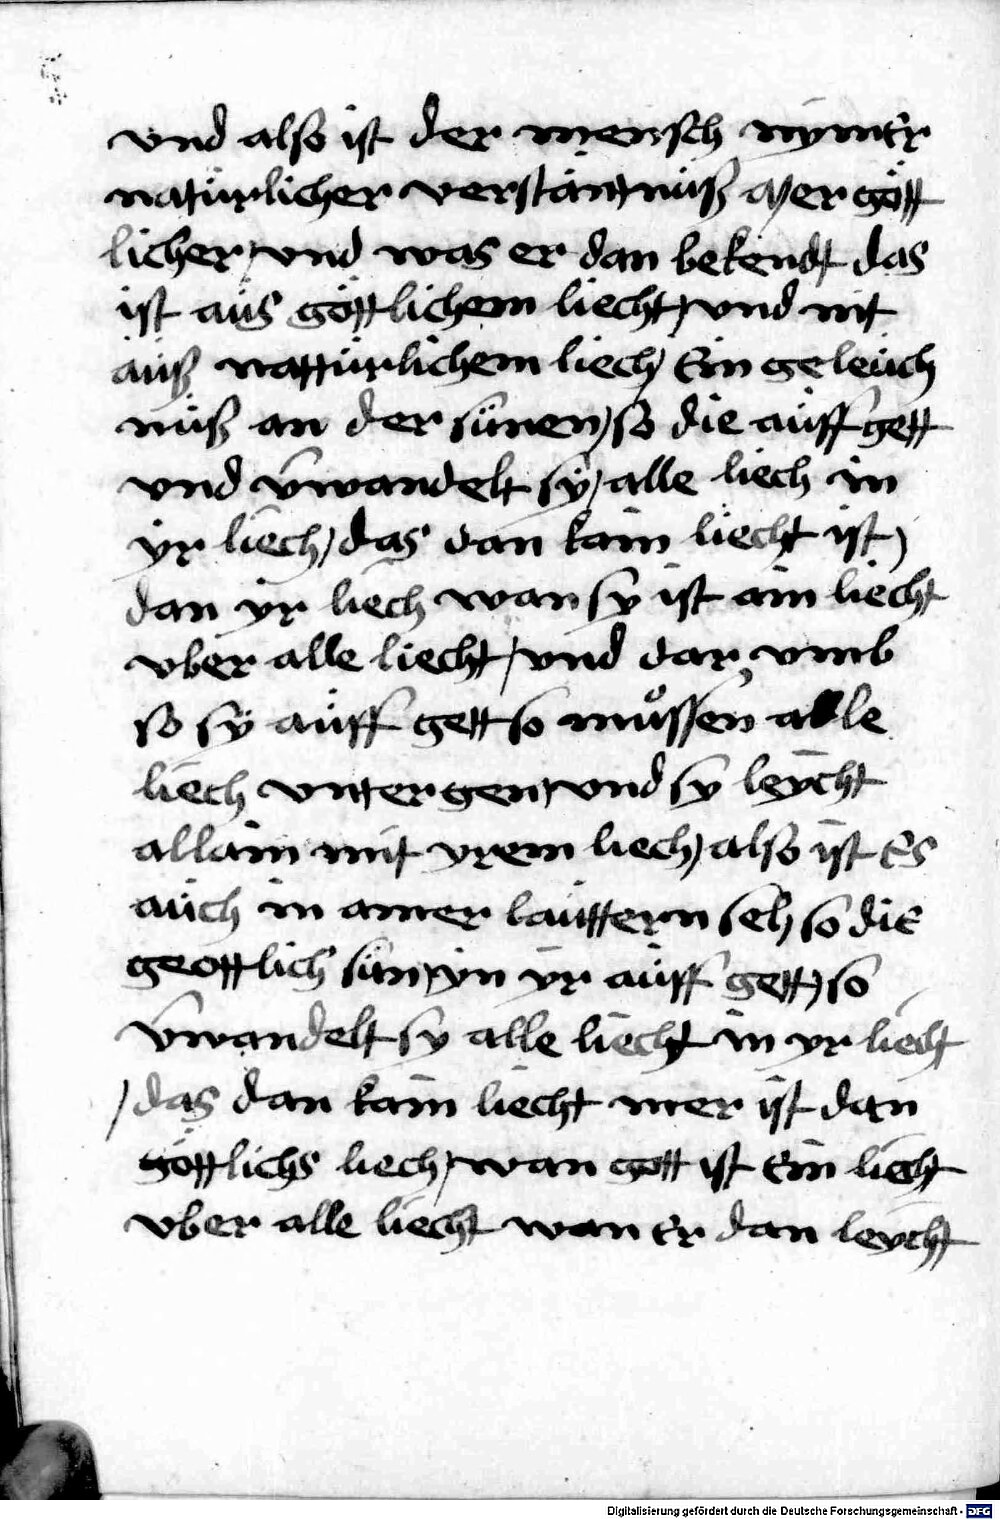 vnd also ist der mensch nymer
natürlicher verstäntnüß aser gött
licher / vnd was er dan bekendt das
ist aüs göttlichem liecht / vnd nit
aüß nattürlichem liech / Ein geleüch
nüß an der sünen / so die aüff gett
vnd v̄wandelt sy / alle liech in
yr liech / das dan kain liecht ist /
dan yr liech wan sy ist ain liecht
vber alle liecht / vnd dar vmb
so sÿ aüff gett so můssen alle
liech vntergen / vnd sy leycht
allain mit yrem liech / also ist Es
aüch in ainer laüttern sel / so die
geottlich sün / yn yr aüff gett / so
v̄wandelt sy alle liecht in yr liecht
/ das dan kain liecht mer ist dan
göttlichs liech / wan gott ist Ein liecht
vber alle liecht wan Er dan leycht
Digitalisierung gefördert durch die Deutsche Forschungsgemeinschaft - DFG